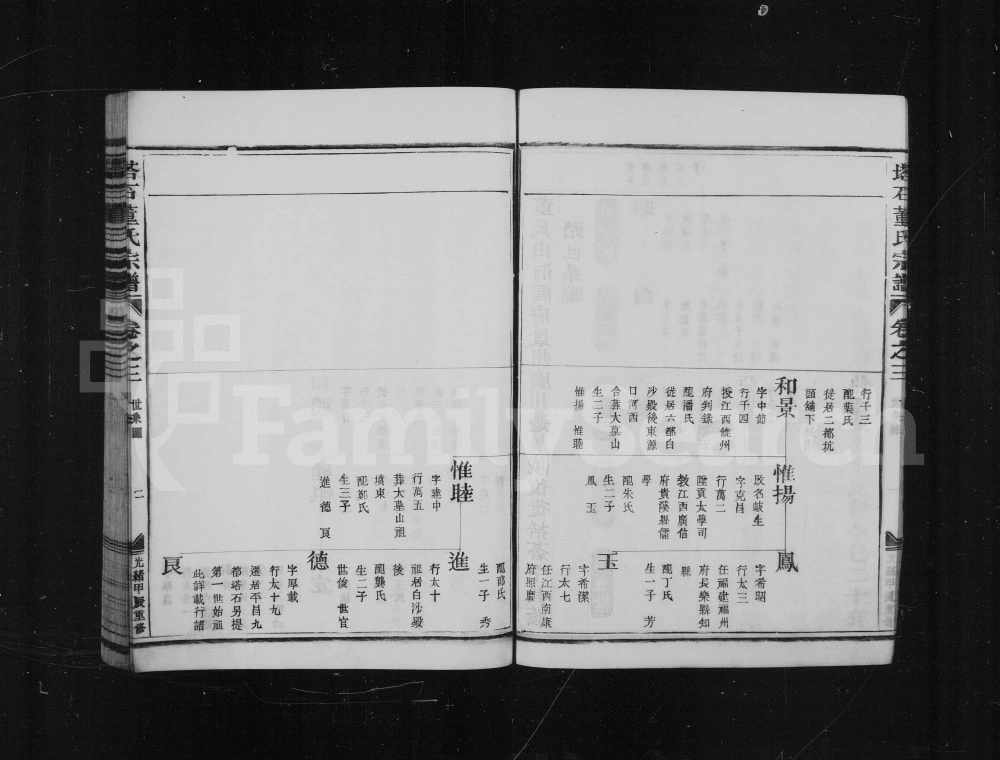 塔石董氏宗譜
卷之三
行千三
配葉氏
從居二都坑
頭舖下
和景
字中節
行千四
授江西饒州
府判錄
配潘氏
從居六都白
沙殿後東源
日河西
合葬大墓山
生二子
惟揚 惟睦
惟揚
改名岐生
字克昌
行萬二
陞貢太學司
教江西廣信
府貴溪縣儒
學
配朱氏
生二子
鳳 玉
鳳
字希昭
行太三
任福建福州
府長樂縣知
縣
配丁氏
生一子 芳
玉
字希潔
行太七
任江西南康
府照磨
配邵氏
生一子 秀
惟睦
字達中
行萬五
葬大墓山祖
墳東
配鄭氏
生三子
進 德 良
進
行太十
祖居白沙殿
後
配龔氏
生二子
世俊 世官
德
字厚載
行太十九
遷居平昌九
都塔石另提
第一世始祖
此詳載行譜
良
塔石董氏宗譜
卷之三
世系圖
二
光緒甲辰重修
FamilySearch